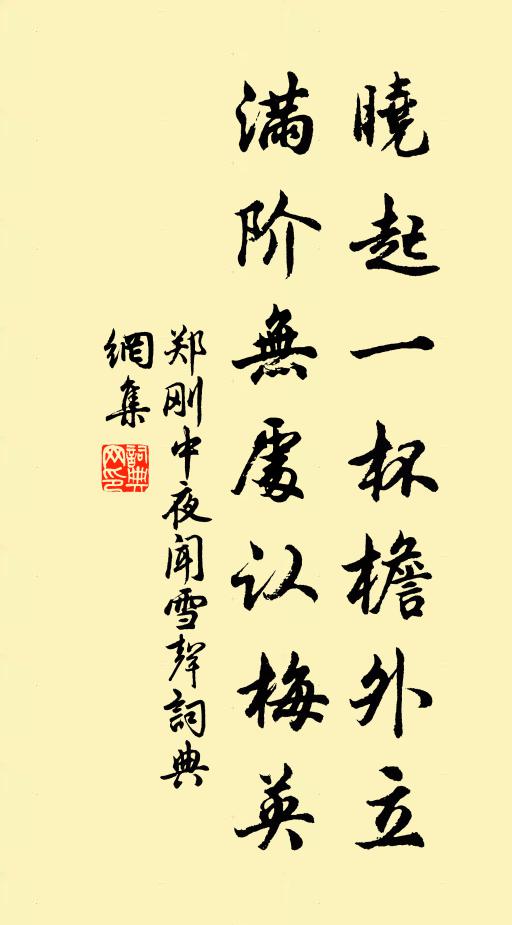 曉起一杯檐外立
满阶無處认梅英
郑刚中夜闻雪聲詞典
網集
詞典
网印